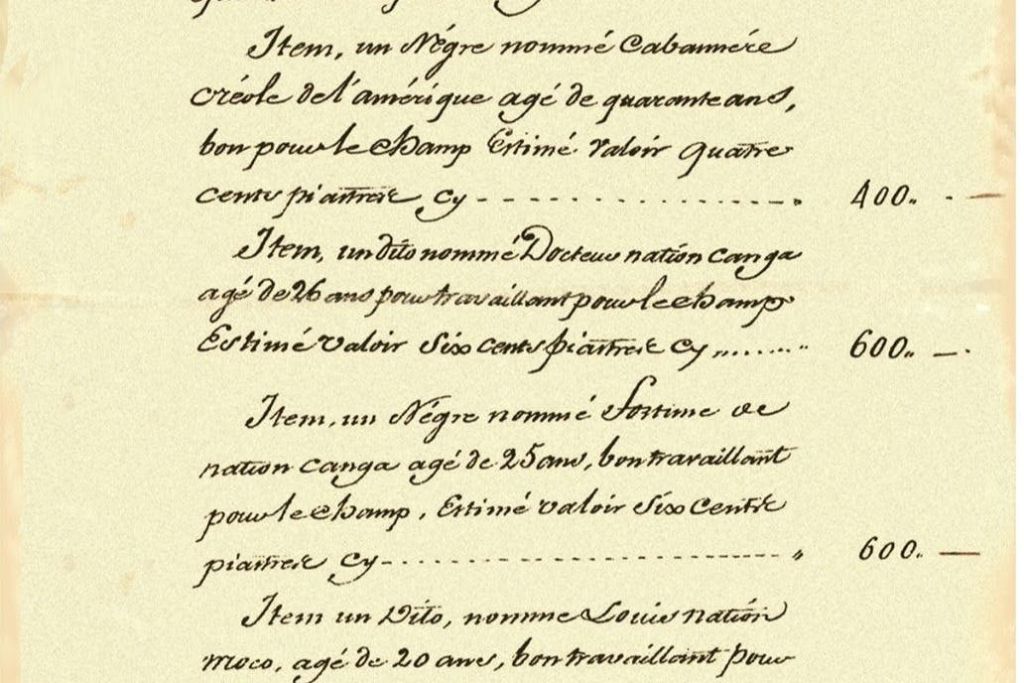 Item, un Négre nommé Cabannére
créole de l'amérique agé de quarante ans,
bon pour le champ Estimé Valoir Quatre
cents piastres Cy - - - - - - - - - - - - - - - „ 400„ - —
Item, un dito nommé Docteur natión canga
agé de 26 ans pour travaillant pour le champ
Estimé valoir Six cents piastres Cy „........ 600„ —.
Item, un Négre nommé Fortune de
nation Canga agé de 25 ans, bon travaillant
pour le champ, Estimé valoir Six Cents
piastres Cy - - - - - - - - - - - - - - - - - - „ 600. —
Item un Dito, nomme Louis natión
moco, agé de 20 ans, bon travaillant pour